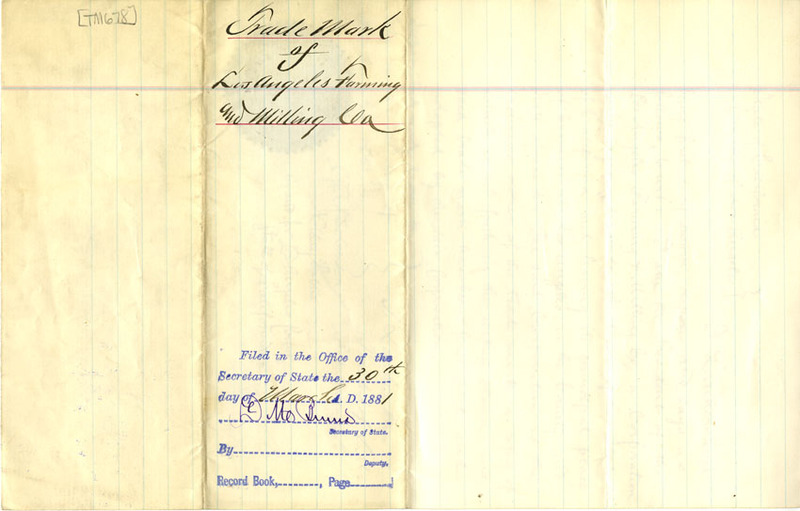 [TM678]
Trade Mark
of
Los Angeles Farming
and Milling Co
Filed in the Office of the
Secretary of State the 30th
day of March A. D. 1881
Secretary of State.
By
Deputy.
Record Book, , Page